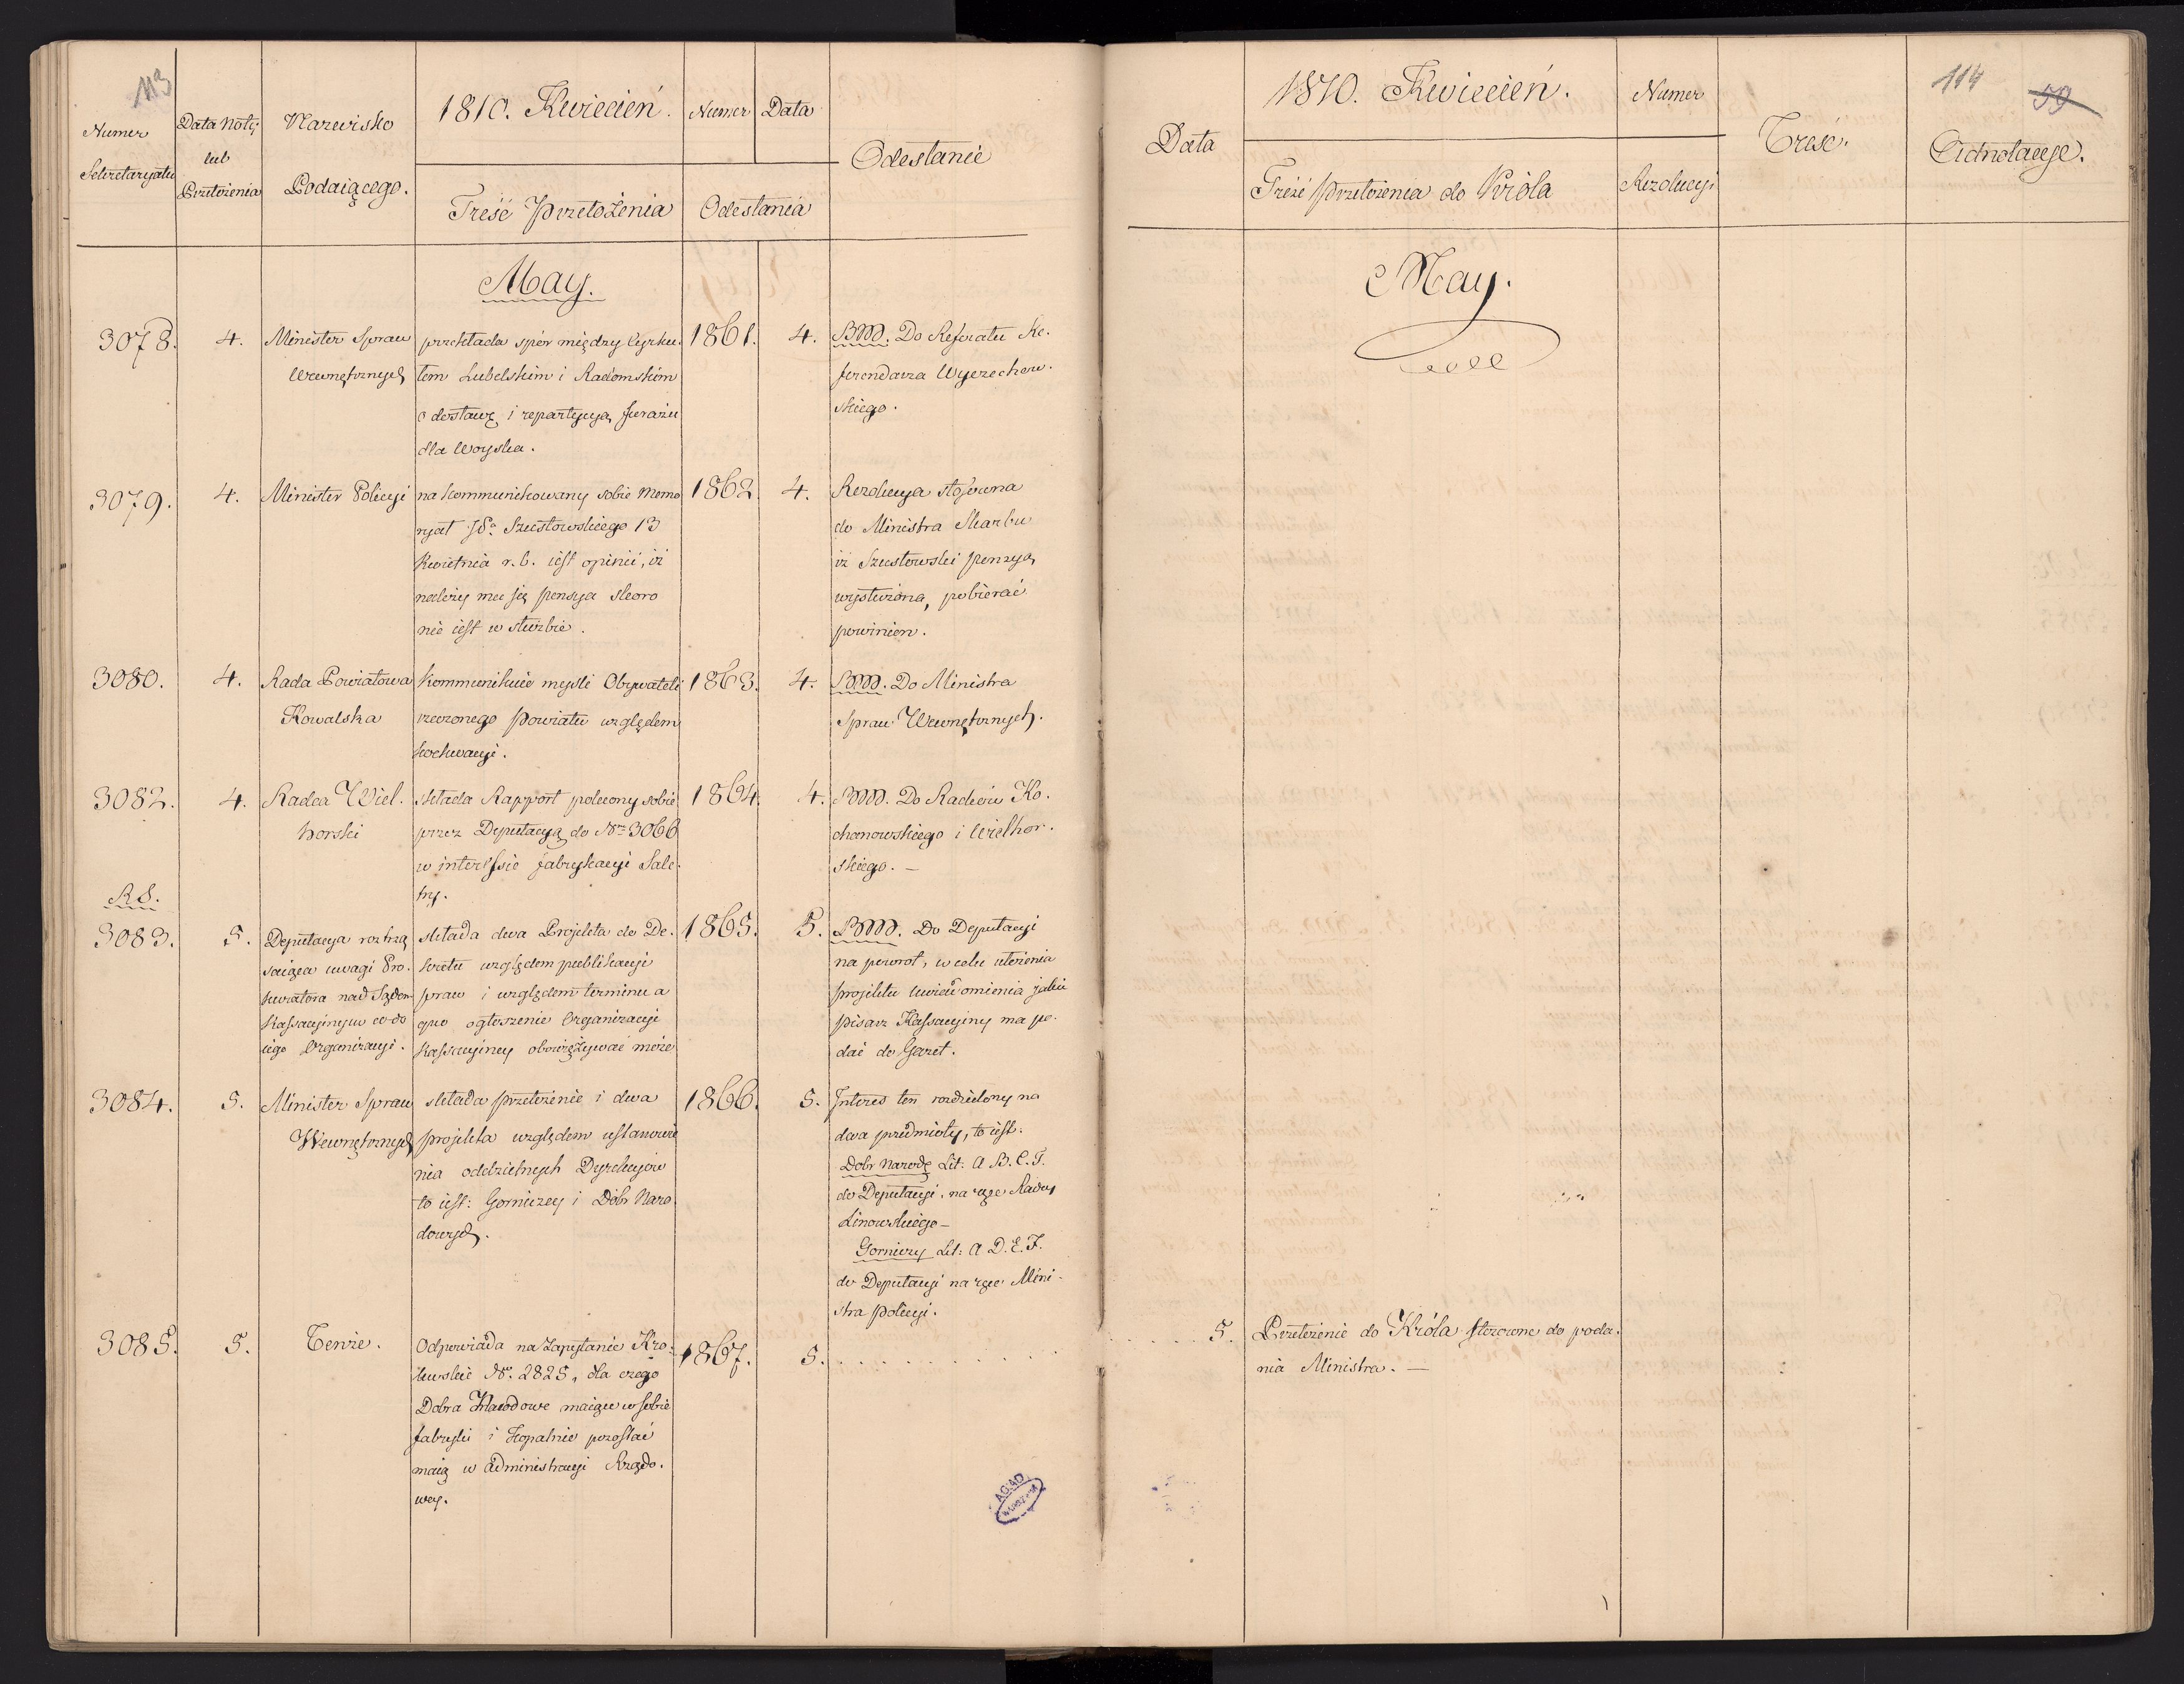 113
Numer
Sekretaryatu
Data Noty
lub
Przełożenia
Nazwisko
Podaiącego.
1810. Kwiecień.
Treść Przełożenia
Numer
Data
Odesłania
Odesłanie
May.
3078.
4.
Minister Spraw
Wewnętrznych
przekłada spór między Cyrku-
łem Lubelskim i Radomskim
o dostawę i repartycyą furażu
dla Woyska.
1861.
4.
BM. Do Referatu Re-
ferendarza Wyczechow-
skiego.
3079.
4.
Minister Policyi
na kommunikowany sobie Memo
ryał Szustowskiego 13
Kwietnia r. b. iest opinii, iż
należy mu się pensya skoro
nie iest w służbie.
1862.
4.
Rezolucya stosowna
do Ministra Skarbu
iż Szustowski pensyą
wysłużoną, pobierać
powinien.
3080.
4.
Rada Powiatowa
Kowalska
kommunikuie myśli Obywateli
rzeczonego Powiatu względem
1863.
4.
BM. Do Ministra
Spraw Wewnętrznych.
3082.
4.
Radca Wiel-
horski
składa Rapport polecony sobie
przez Deputacyą do Nru 3066
w interessie fabrykacyi Sale-
try.
1864.
4.
BM. Do Radców Ko-
chanowskiego i Wielhor-
skiego. —
R S.
3083.
5.
Deputacya roztrzą
saiąca uwagi Pro-
kuratora nad Sądem
Kassacyinym co do
iego Organizacyi.
składa dwa Projekta do De-
kretu względem publikacyi
praw i względem terminu a
quo ogłoszenie Organizacyi
Kassacyiney obowiązywać może
1865.
5.
BM. Do Deputacyi
na powrot, w celu ułożenia
projektu uwiadomienia jakie
pisarz Kassacyiny ma po-
dać do Gazet.
3084.
5.
Minister Spraw
Wewnętrznych
składa przełożenie i dwa
projekta względem ustanowie
nia oddzielnych Dyrekcyiów
to iest: Gorniczey i Dóbr Naro
dowych.
1866.
5.
Interes ten rozdzielony na
dwa przedmioty, to iest:
Dobr Narodo Lit: A B. C. G.
do Deputacyi, na ręce Radcy
Linowskiego —
Gorniczy Lit: A. D. E. F.
do Deputacyi na ręce Mini-
stra Policyi.
3085.
5.
Tenże.
Odpowiada na Zapytanie Kró-
lewskie No. 2825, dla czego
Dobra Narodowe maiące w sobie
fabryki i Kopalnie pozostać
maią w Administracyi Rządo-
wey.
1867.
5. . . . . . . . . . . . .
AGAD
WARSZAWA
114
59
Data
1810. Kwiecień.
Treść Przełożenia do Króla
Numer
Rezolucyi
Treść.
Adnotacye.
May.
. . . . . 5.
Przełożenie do Króla stosowne do poda-
nia Ministra. —